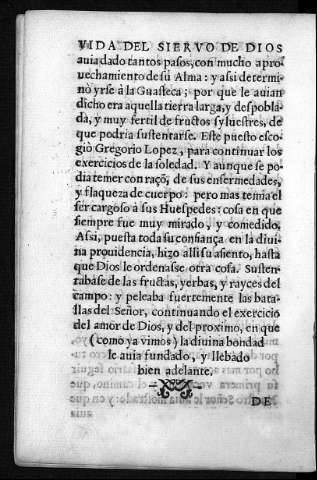 VIDA DEL SIERVO DE DIOS
auia dado tantos pasos, con mucho apro-
uechamiento de sú Alma: y assi determi-
nò yrse à la Guasteca; por que le auian
dicho era aquella tierra larga, y despobla-
da, y muy fertil de fructos syluestres, de
que podria sustentarse. Este puesto esco-
giò Gregorio Lopez, para continuar los
exercicios de la soledad. Y aunque se po-
dia temer con raçõ, de sus enfermedades,
y flaqueza de cuerpo: pero mas temia el
ser cargoso à sus Huespedes: cosa en que
siempre fue muy mirado, y comedido.
Assi, puesta toda su confiança en la diui-
na prouidencia, hizo alli su asiento, hasta
que Dios le ordenasse otra cosa. Susten-
tabase de las fructas, yerbas, y rayces del
campo: y peleaba fuertemente las bata-
llas del Señor, continuando el exercicio
del amor de Dios, y del proximo, en que
(como ya vimos) la diuina bondad
le auia fundado, y llebado
bien adelante.
DE